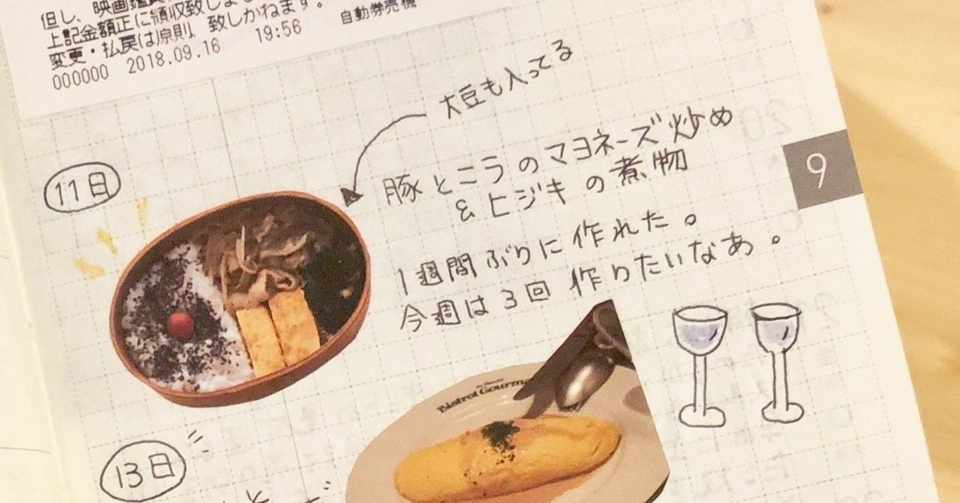 但し、映画鑑賞
上記金額正に領収致しま
変更・払戻は原則 致しかねます。
000000 2018.09.16 19:56 自動券売機
大豆も入ってる
11日
豚とニラのマヨネーズ炒め
&ヒジキの煮物
9
1週間ぶりに作れた。
今週は3回作りたいなあ。
Bistrot Gourma
13日